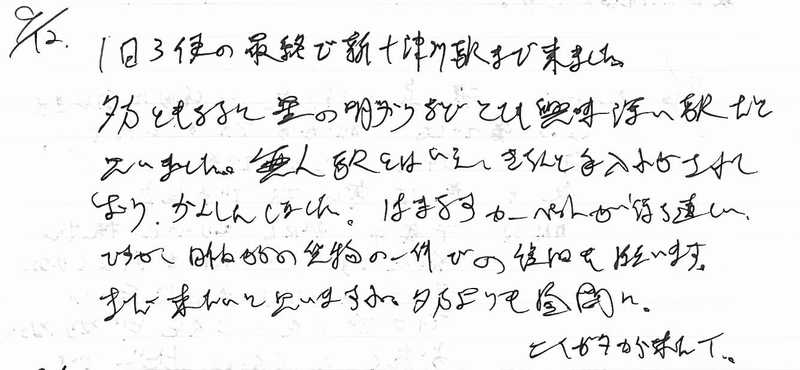 9/12. 1日3便の最終で新十津川駅まで来ました。
夕方ともなると 星の明かりなど とても興味深い駅だと
思いました。無人駅とはいえ、きちんと手入れがされて
おり、かんしんしました。はまますカーペットが待ち遠しい、
ですが、貨物の一件での復旧を願います。
また来たいと思いますね。夕方よりも昼間に。
ニイガタから来んて。